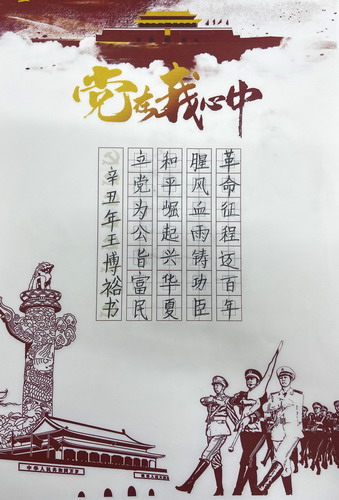 党在我心中
革命征程迈百年
腥风血雨铸功臣
和平崛起兴华夏
立党为公旨富民
辛丑年王博裕书